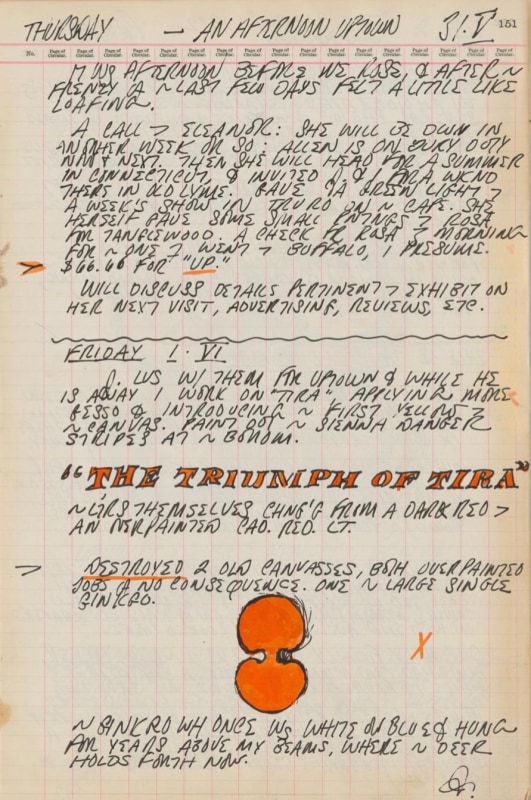 THURSDAY — AN AFTERNOON UPTOWN 31·V 151
No. Page of Circular. Page of Circular. Page of Circular. Page of Circular. Page of Circular. Page of Circular. Page of Circular. Page of Circular. Page of Circular. Page of Circular.
IT WS AFTERNOON BEFORE WE ROSE, & AFTER ~
FRENZY O ~ LAST FEW DAYS FELT A LITTLE LIKE
LOAFING.
A CALL > ELEANOR: SHE WILL BE DOWN IN
ANOTHER WEEK OR SO: ALLEN IS ON JURY DUTY
NOW & NEXT. THEN SHE WILL HEAD FOR A SUMMER
IN CONNECTICUT, & INVITED & I FOR A WKND
THERE IN OLD LYME. GAVE GREEN LIGHT >
A WEEK'S SHOW IN TRURO ON ~ CAPE. SHE
HERSELF GAVE SOME SMALL PNTNGS > ROSA
FOR TANGLEWOOD. A CHECK FR ROSA > MORNING
FOR ~ ONE WENT > BUFFALO, I PRESUME.
> $66.66 FOR "UP."
WILL DISCUSS DETAILS PERTINENT > EXHIBIT ON
HER NEXT VISIT, ADVERTISING, REVIEWS, ETC.
FRIDAY 1·VI
LVS W/ THEM FOR UPTOWN & WHILE HE
IS AWAY I WORK ON "TIRA" APPLYING MORE
GESSO & INTRODUCING ~ FIRST YELLOW >
~ CANVAS. PAINT OUT ~ SIENNA DANGER
STRIPES AT ~ BOTTOM.
"THE TRIUMPH OF TIRA"
~ LTRS THEMSELVES CHNG'G FROM A DARK RED >
AN OVERPAINTED CAD. RED. LT.
> DESTROYED 2 OLD CANVASSES, BOTH OVERPAINTED
JOBS O NO CONSEQUENCE. ONE ~ LARGE SINGLE
GINKGO.
X
~ GINKGO WH ONCE WS WHITE ON BLUE & HUNG
FOR YEARS ABOVE MY BEAMS, WHERE ~ DEER
HOLDS FORTH NOW.